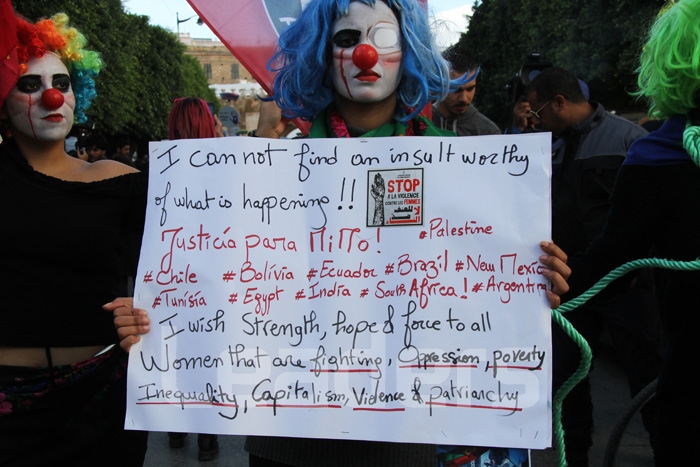 I can not find an insult worthy
of what is happening !!
STOP
A LA VIOLENCE
CONTRE LES FEMMES
Justicia para MiMo! #Palestine
#Chile #Bolivia #Ecuador #Brazil #New Mexico
#Tunisia #Egypt #India #South Africa! #Argentina
I wish Strength, hope & force to all
Women that are fighting, Oppression, poverty
Inequality, Capitalism, Violence & patriarchy